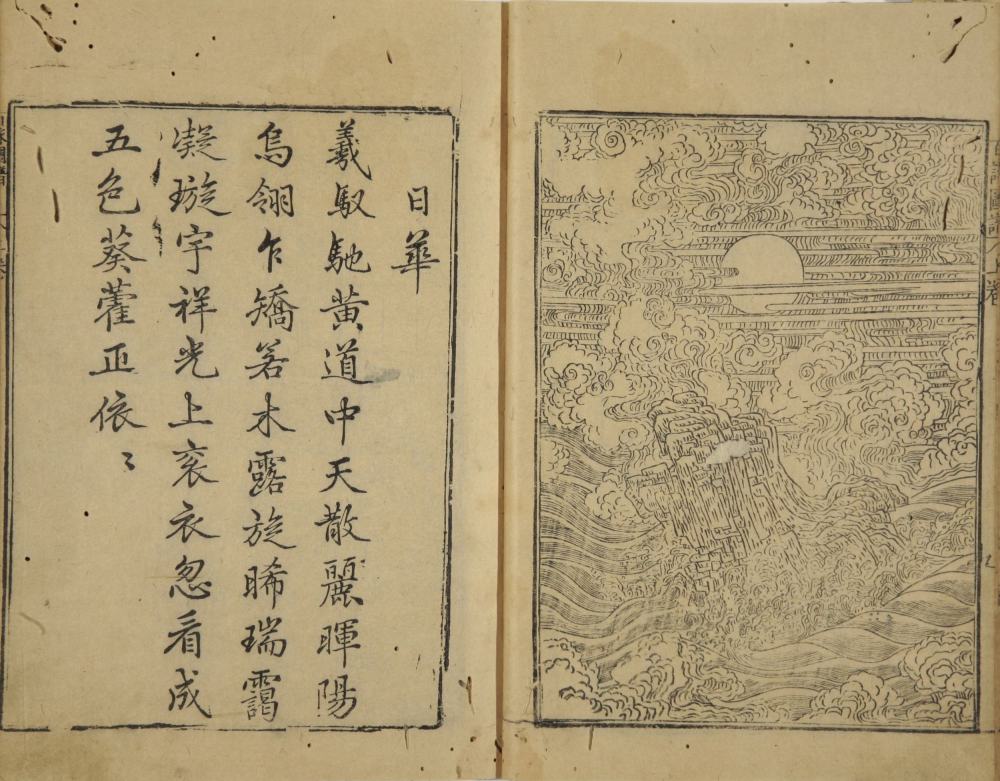 日華
羲馭馳黃道中天散麗暉陽
烏翎乍矯若木露旋晞瑞靄
凝璇宇祥光上袞衣忽看成
五色葵藿正依〻